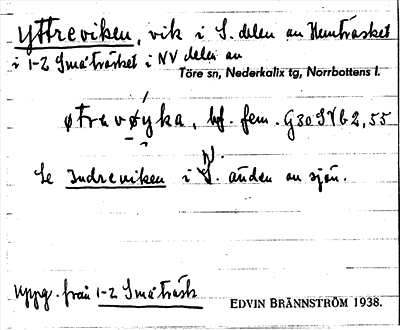 Yttreviken, vik i S. delen av Hemträsket
i 1-2 Småträsket i NV delen av
Töre sn, Nederkalix tg, Norrbottens l.
øtrevøyka, bf. fem. G30SVb2,55
Se Indreviken i N. änden av sjön.
Uppg. från 1-2 Småträsk
EDVIN BRÄNNSTRÖM 1938.